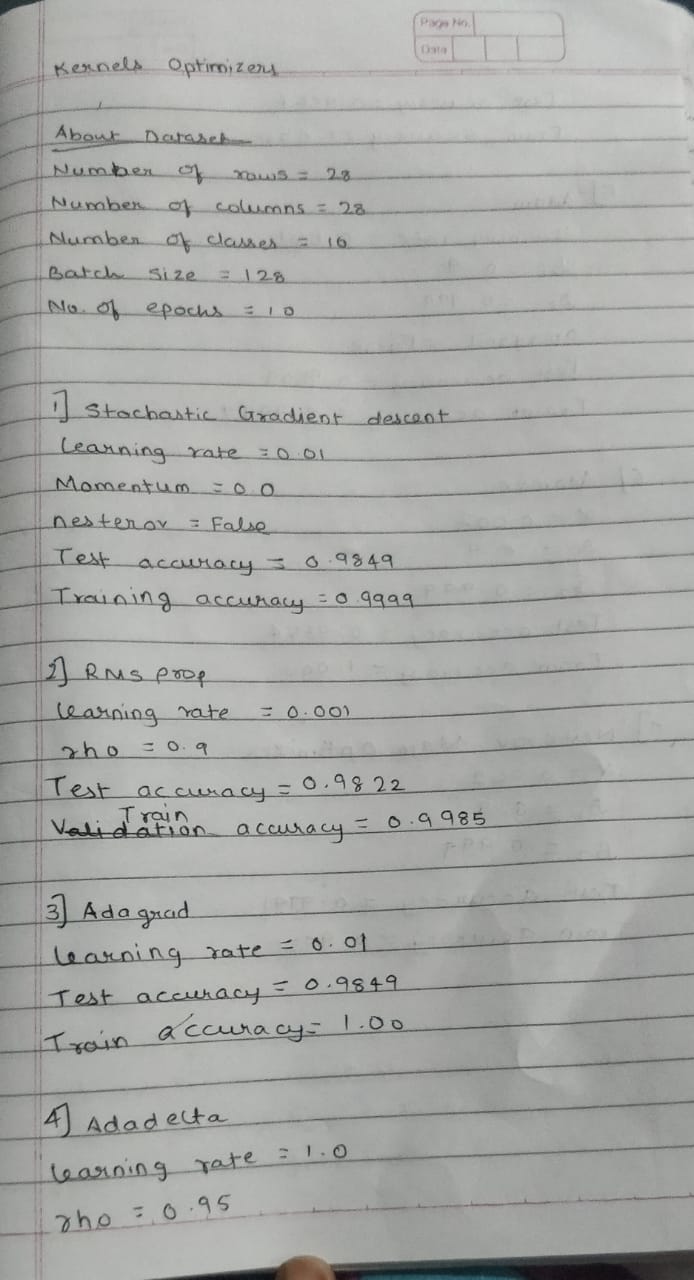 Page No.
Date
Kernels Optimizers
About Dataset
Number of rows = 28
Number of columns = 28
Number of classes = 10
Batch size = 128
No. of epochs = 10
1] Stochastic Gradient descent
learning rate = 0.01
Momentum = 0.0
nesterov = False
Test accuracy = 0.9849
Training accuracy = 0.9999
2] RMS prop
learning rate = 0.001
rho = 0.9
Test accuracy = 0.9822
Train
Validation accuracy = 0.9985
3] Adagrad
learning rate = 0.01
Test accuracy = 0.9849
Train accuracy = 1.00
4] Adadelta
learning rate = 1.0
rho = 0.95